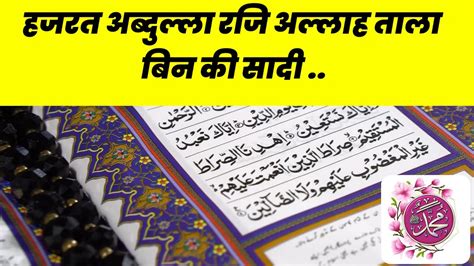 हजरत अब्दुल्ला रजि अल्लाह ताला
बिन की सादी ..
الرَّحْمٰنِ
يَوْمِ الدِّيْنِ اِيَّاكَ نَعْبُدُ
نَسْتَعِيْنُ اِهْدِنَا الصِّرَاطَ
الْمُسْتَقِيْمَ صِرَاطَ الَّذِيْنَ اَنْعَمْتَ عَلَيْهِمْ
غَيْرِ الْمَغْضُوْبِ عَلَيْهِمْ وَلَا الضَّآلِّيْنَ
محمد